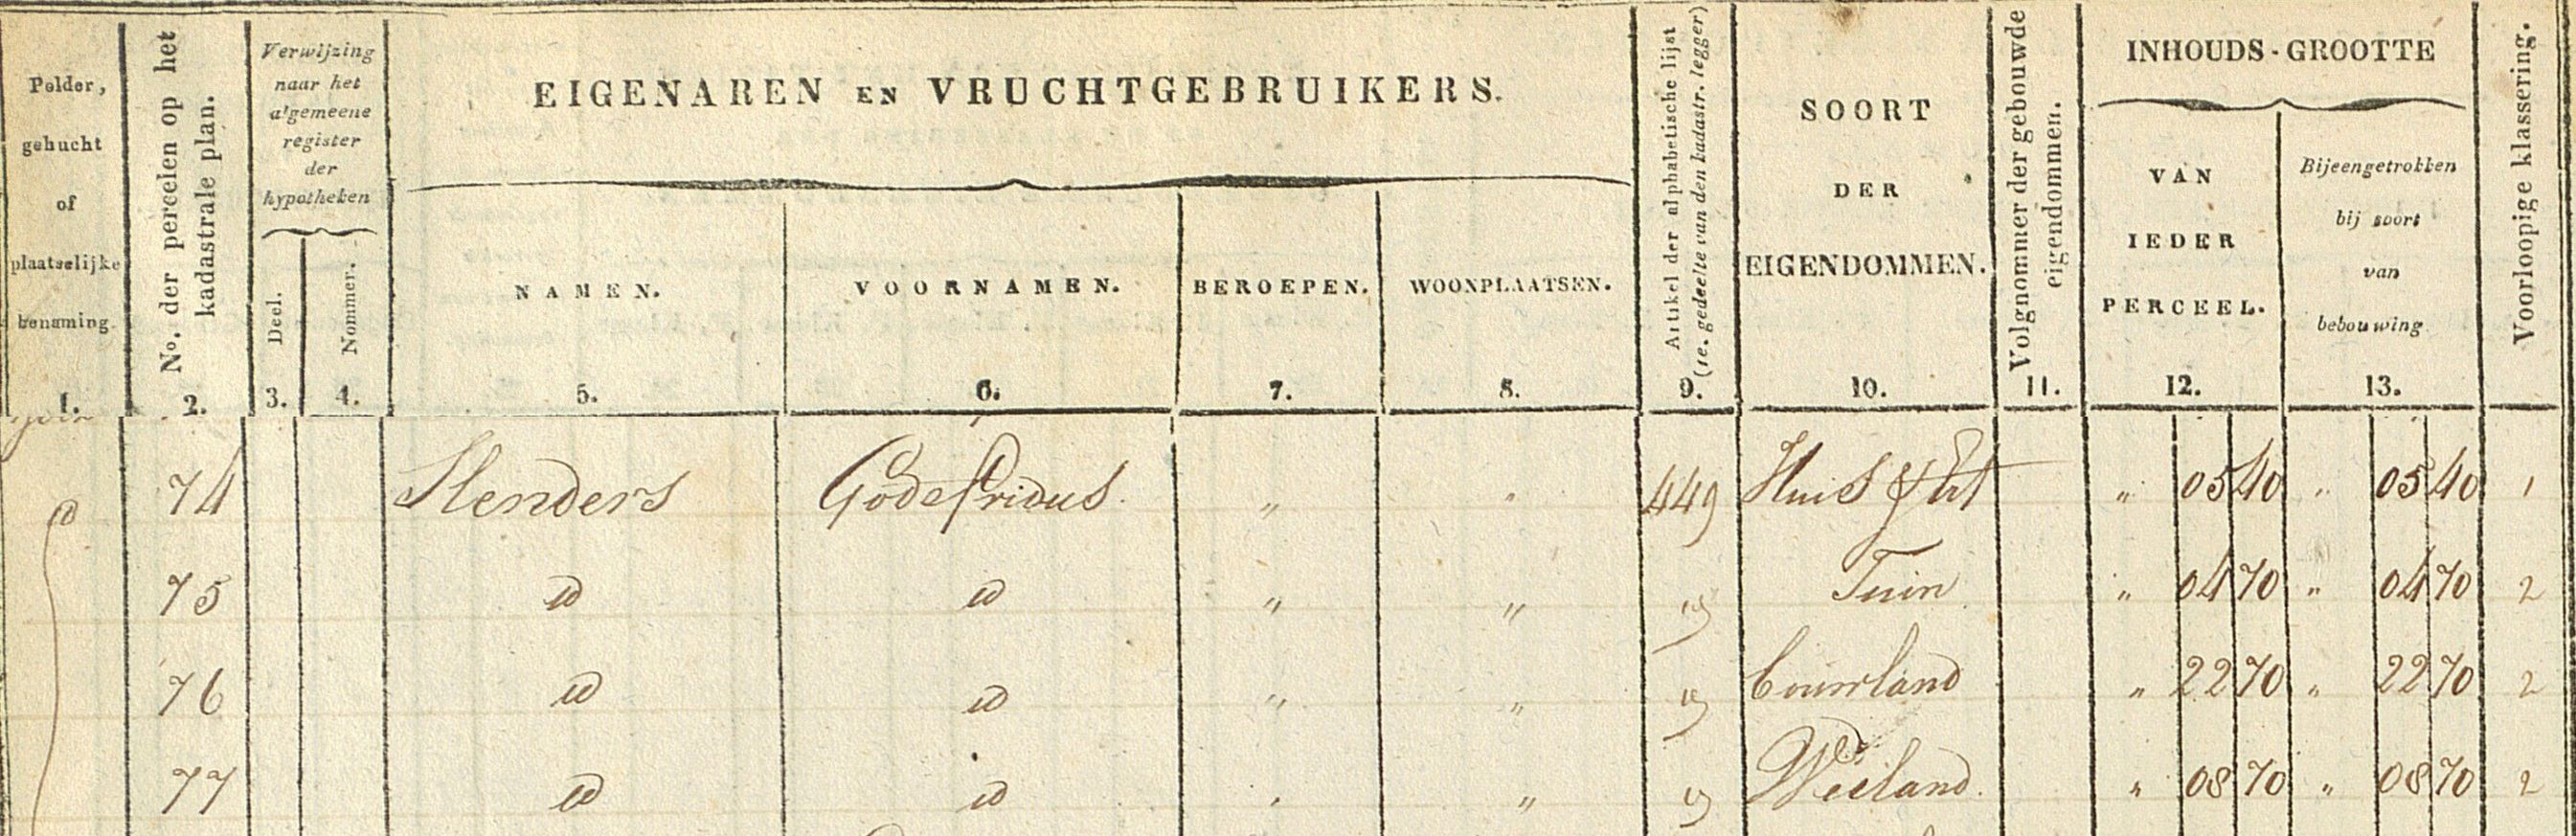 Polder, gehucht of plaatselijke benaming. 1.
No. der percelen op het kadastrale plan. 2.
Verwijzing naar het algemeene register der hypotheken
Deel. 3.
Nommer. 4.
EIGENAREN EN VRUCHTGEBRUIKERS.
NAMEN. 5.
VOORNAMEN. 6.
BEROEPEN. 7.
WOONPLAATSEN. 8.
Artikel der alphabetische lijst (1e. gedeelte van den kadastr. legger) 9.
SOORT DER EIGENDOMMEN. 10.
Volgnommer der gebouwde eigendommen. 11.
INHOUDS-GROOTTE
VAN IEDER PERCEEL. 12.
Bijeengetrokken bij soort van bebouwing 13.
Voorloopige klassering.
id 74 Henders Godefridus " " 449 Huis & Erf " 05 40 " 05 40 1
75 id id " " " Tuin " 04 70 " 04 70 2
76 id id " " " Bouwland " 22 70 " 22 70 2
77 id id " " " Weiland " 08 70 " 08 70 2